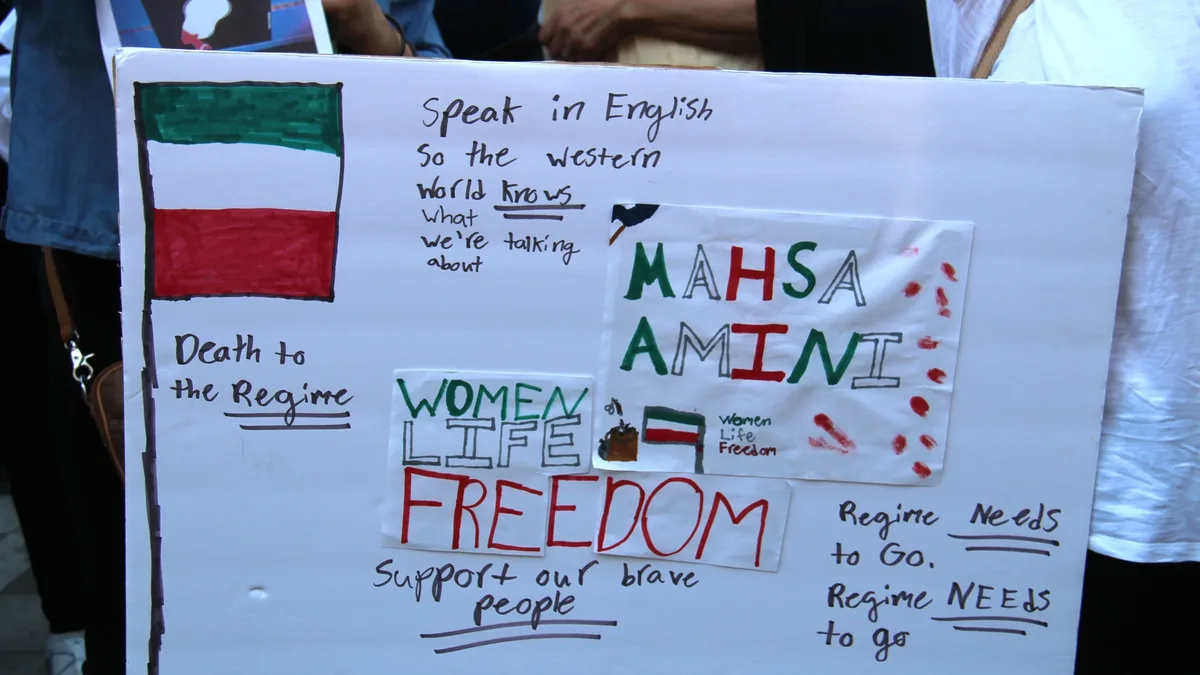 Speak in English
So the western
world knows
what
we're talking
about
MAHSA
AMINI
Women
Life
Freedom
Death to
the Regime
WOMEN
LIFE
FREEDOM
Support our brave
people
Regime NeedS
to Go.
Regime NEEdS
to go